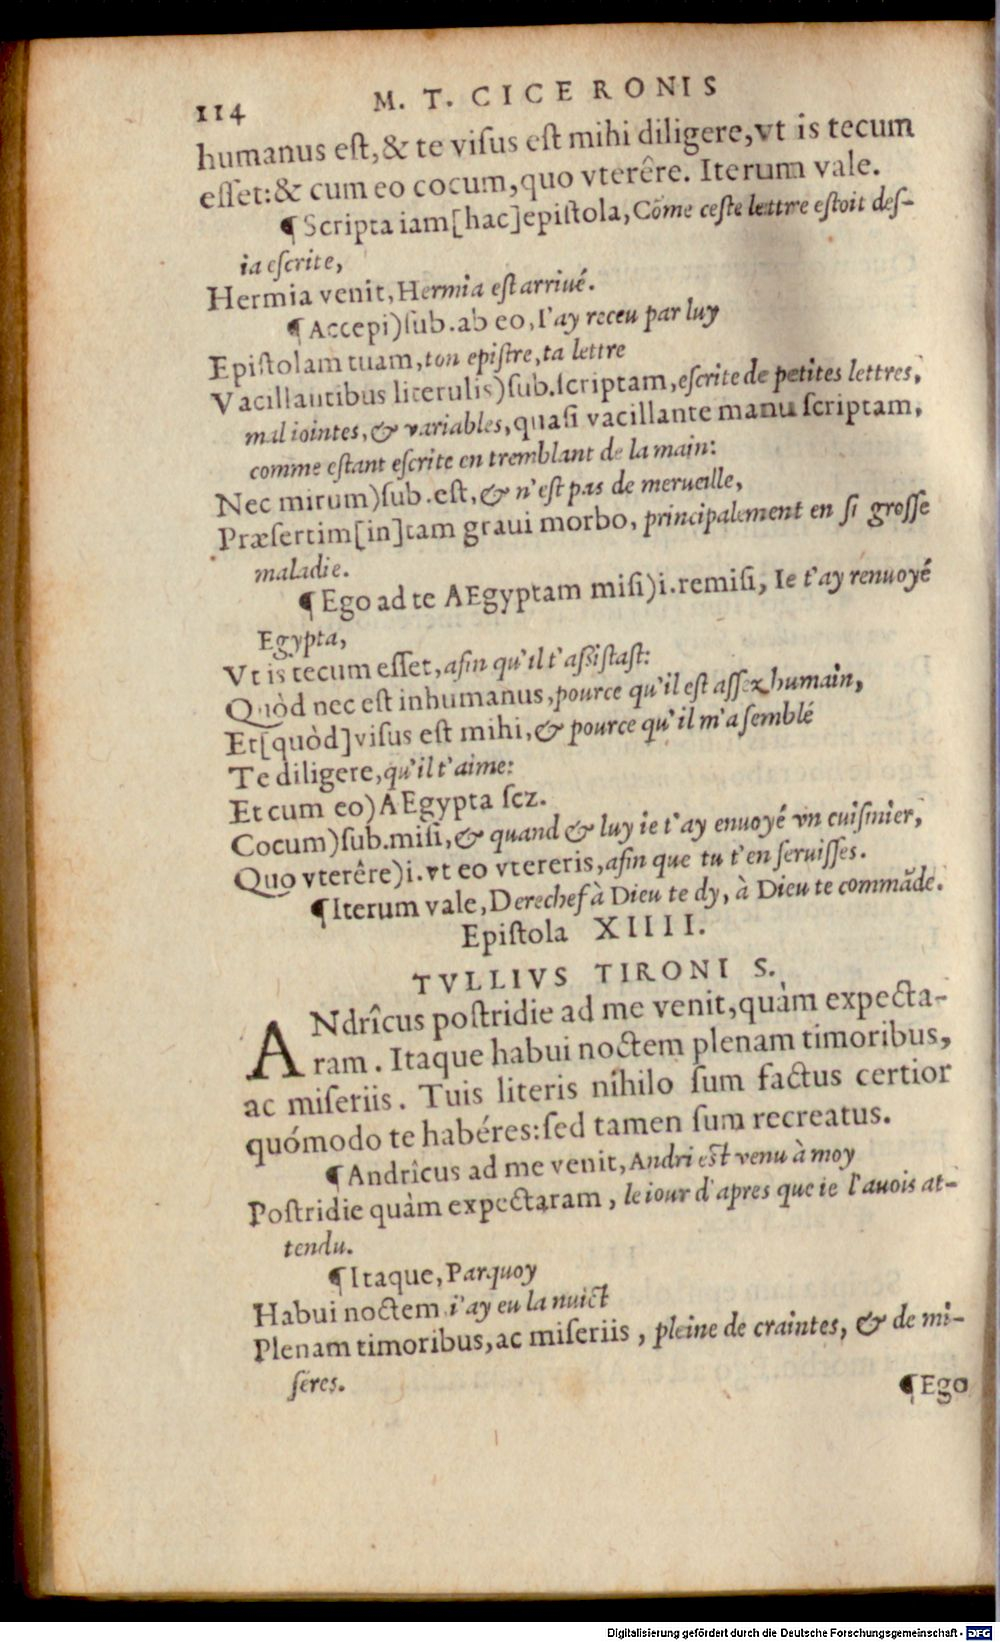 114 M. T. CICERONIS
humanus eſt, & te viſus eſt mihi diligere, vt is tecum
eſſet: & cum eo cocum, quo vterêre. Iterum vale.
¶ Scripta iam [hac] epiſtola, Cõme ceſte lettre eſtoit deſ-
ia eſcrite,
Hermia venit, Hermia eſt arriué.
¶ Accepi) ſub. ab eo, I'ay receu par luy
Epiſtolam tuam, ton epiſtre, ta lettre
Vacillantibus literulis) ſub. ſcriptam, eſcrite de petites lettres,
mal iointes, & variables, quaſi vacillante manu ſcriptam,
comme eſtant eſcrite en tremblant de la main:
Nec mirum) ſub. eſt, & n'eſt pas de merueille,
Præſertim [in] tam graui morbo, principalement en ſi groſſe
maladie.
¶ Ego ad te AEgyptam miſi) i. remiſi, Ie t'ay renuoyé
Egypta,
Vt is tecum eſſet, afin qu'il t'aſſiſtaſt:
Quòd nec eſt inhumanus, pource qu'il eſt aſſez humain,
Et [quòd] viſus eſt mihi, & pource qu'il m'a ſemblé
Te diligere, qu'il t'aime:
Et cum eo) AEgypta ſcz.
Cocum) ſub. miſi, & quand & luy ie t'ay enuoyé vn cuiſinier,
Quo vterêre) i. vt eo vtereris, afin que tu t'en ſeruiſſes.
¶ Iterum vale, Derechef à Dieu te dy, à Dieu te commãde.
Epiſtola XIIII.
TVLLIVS TIRONI S.
ANdrîcus poſtridie ad me venit, quàm expecta-
ram. Itaque habui noctem plenam timoribus,
ac miſeriis. Tuis literis nihilo ſum factus certior
quómodo te habéres: ſed tamen ſum recreatus.
¶ Andrîcus ad me venit, Andri eſt venu à moy
Poſtridie quàm expectaram, le iour d'apres que ie l'auois at-
tendu.
¶ Itaque, Parquoy
Habui noctem i'ay eu la nuict
Plenam timoribus, ac miſeriis, pleine de craintes, & de mi-
ſeres.
¶ Ego
Digitalisierung gefördert durch die Deutsche Forschungsgemeinschaft - DFG